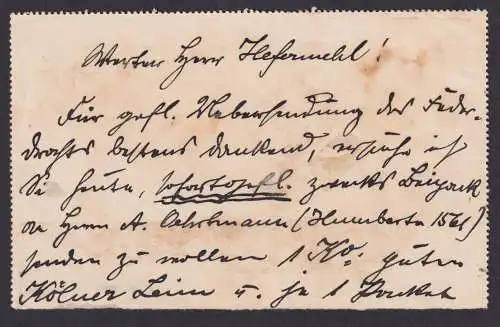 Werter Herr Hefermehl!
Für gefl. Uebersendung des Feder-
drahts bestens dankend, ersuche ich
Sie heute, sofort gefl. zwecks Beipack
an Herrn A. Oehrtmann (Humberta 1561)
senden zu wollen 1 Ko. guten
Kölner Leim u. je 1 Packet